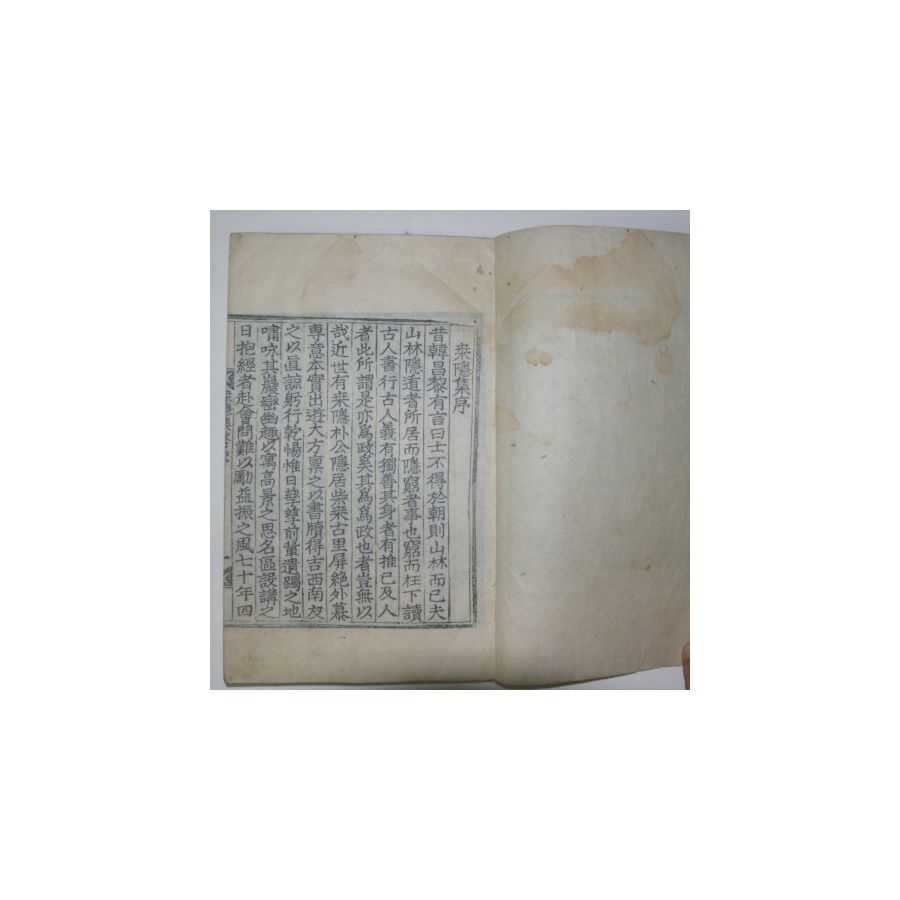 桒隱集序
昔韓昌黎有言曰士不得於朝則山林而已夫
山林隱道者所居而隱窮者事也窮而在下讀
古人書行古人義有獨善其身者有推已及人
者此所謂是亦爲政矣其爲爲政也者豈無以
哉近世有桒隱朴公隱居柴桒古里屏絶外慕
専意本實出遊大方禀之以書牘得吉西南友
之以直諒躬行乾惕惟日孳孳前軰遺躅之地
嘯咏其巖巒幽趣以寓高景之思名區設講之
日抱經者赴會問難以勵益振之風七十年四